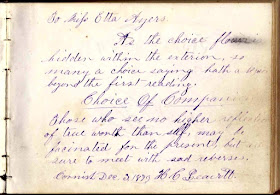 To Miss Etta Ayers.
As the choice
hidden within the exterior, so
many a choice saying hath a
beyond the first reading.
Choice Of
Those who see no higher
of true worth than self, may be
facinated for the present, but a
sure to meet with sad reverses.
Cornish Dec. 2, 1879 H. C. Leavitt